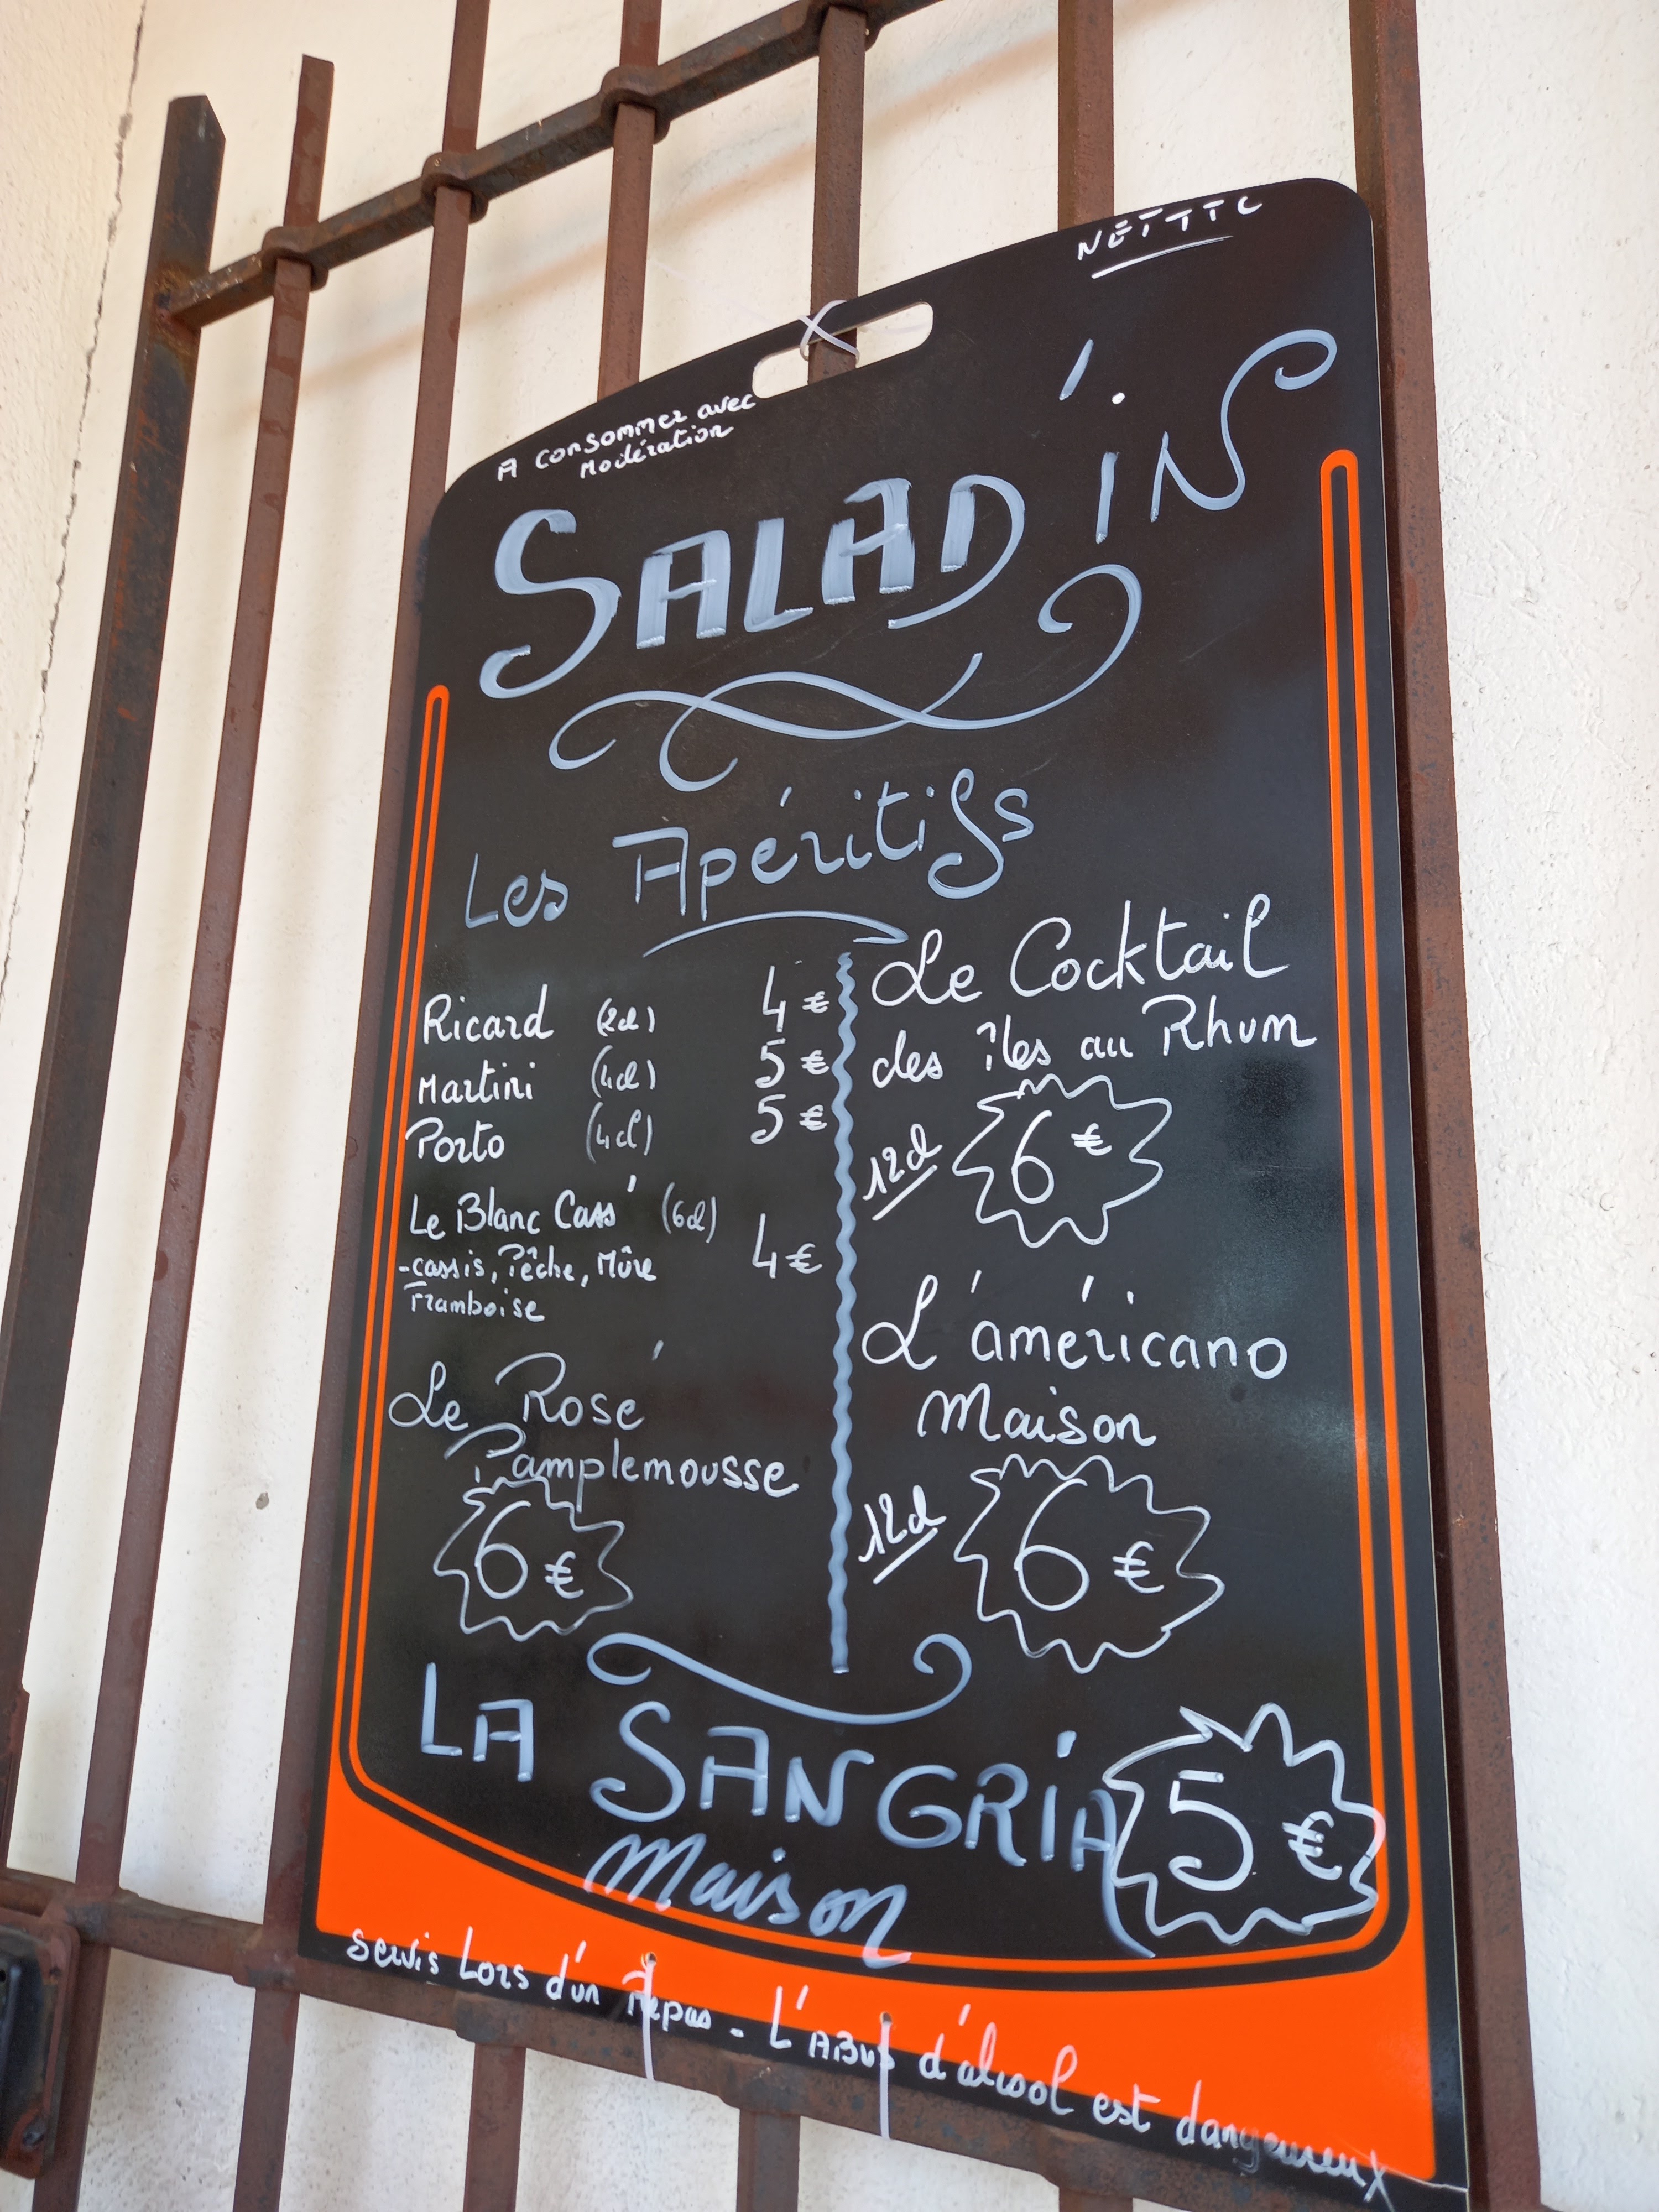 NET TTC
A consommer avec
Modération
SALAD'iNS
Les Apéritifs
Ricard (2cl) 4 €
Martini (4cl) 5 €
Porto (4cl) 5 €
Le Blanc Cass' (6cl)
-cassis, Pêche, Mûre 4 €
Framboise
Le Rosé
Pamplemousse
6 €
Le Cocktail
des îles au Rhum
12cl 6 €
L'américano
Maison
12cl 6 €
LA SANGRiA 5 €
Maison
servis Lors d'un Repas - L'ABUS d'alcool est dangeureux